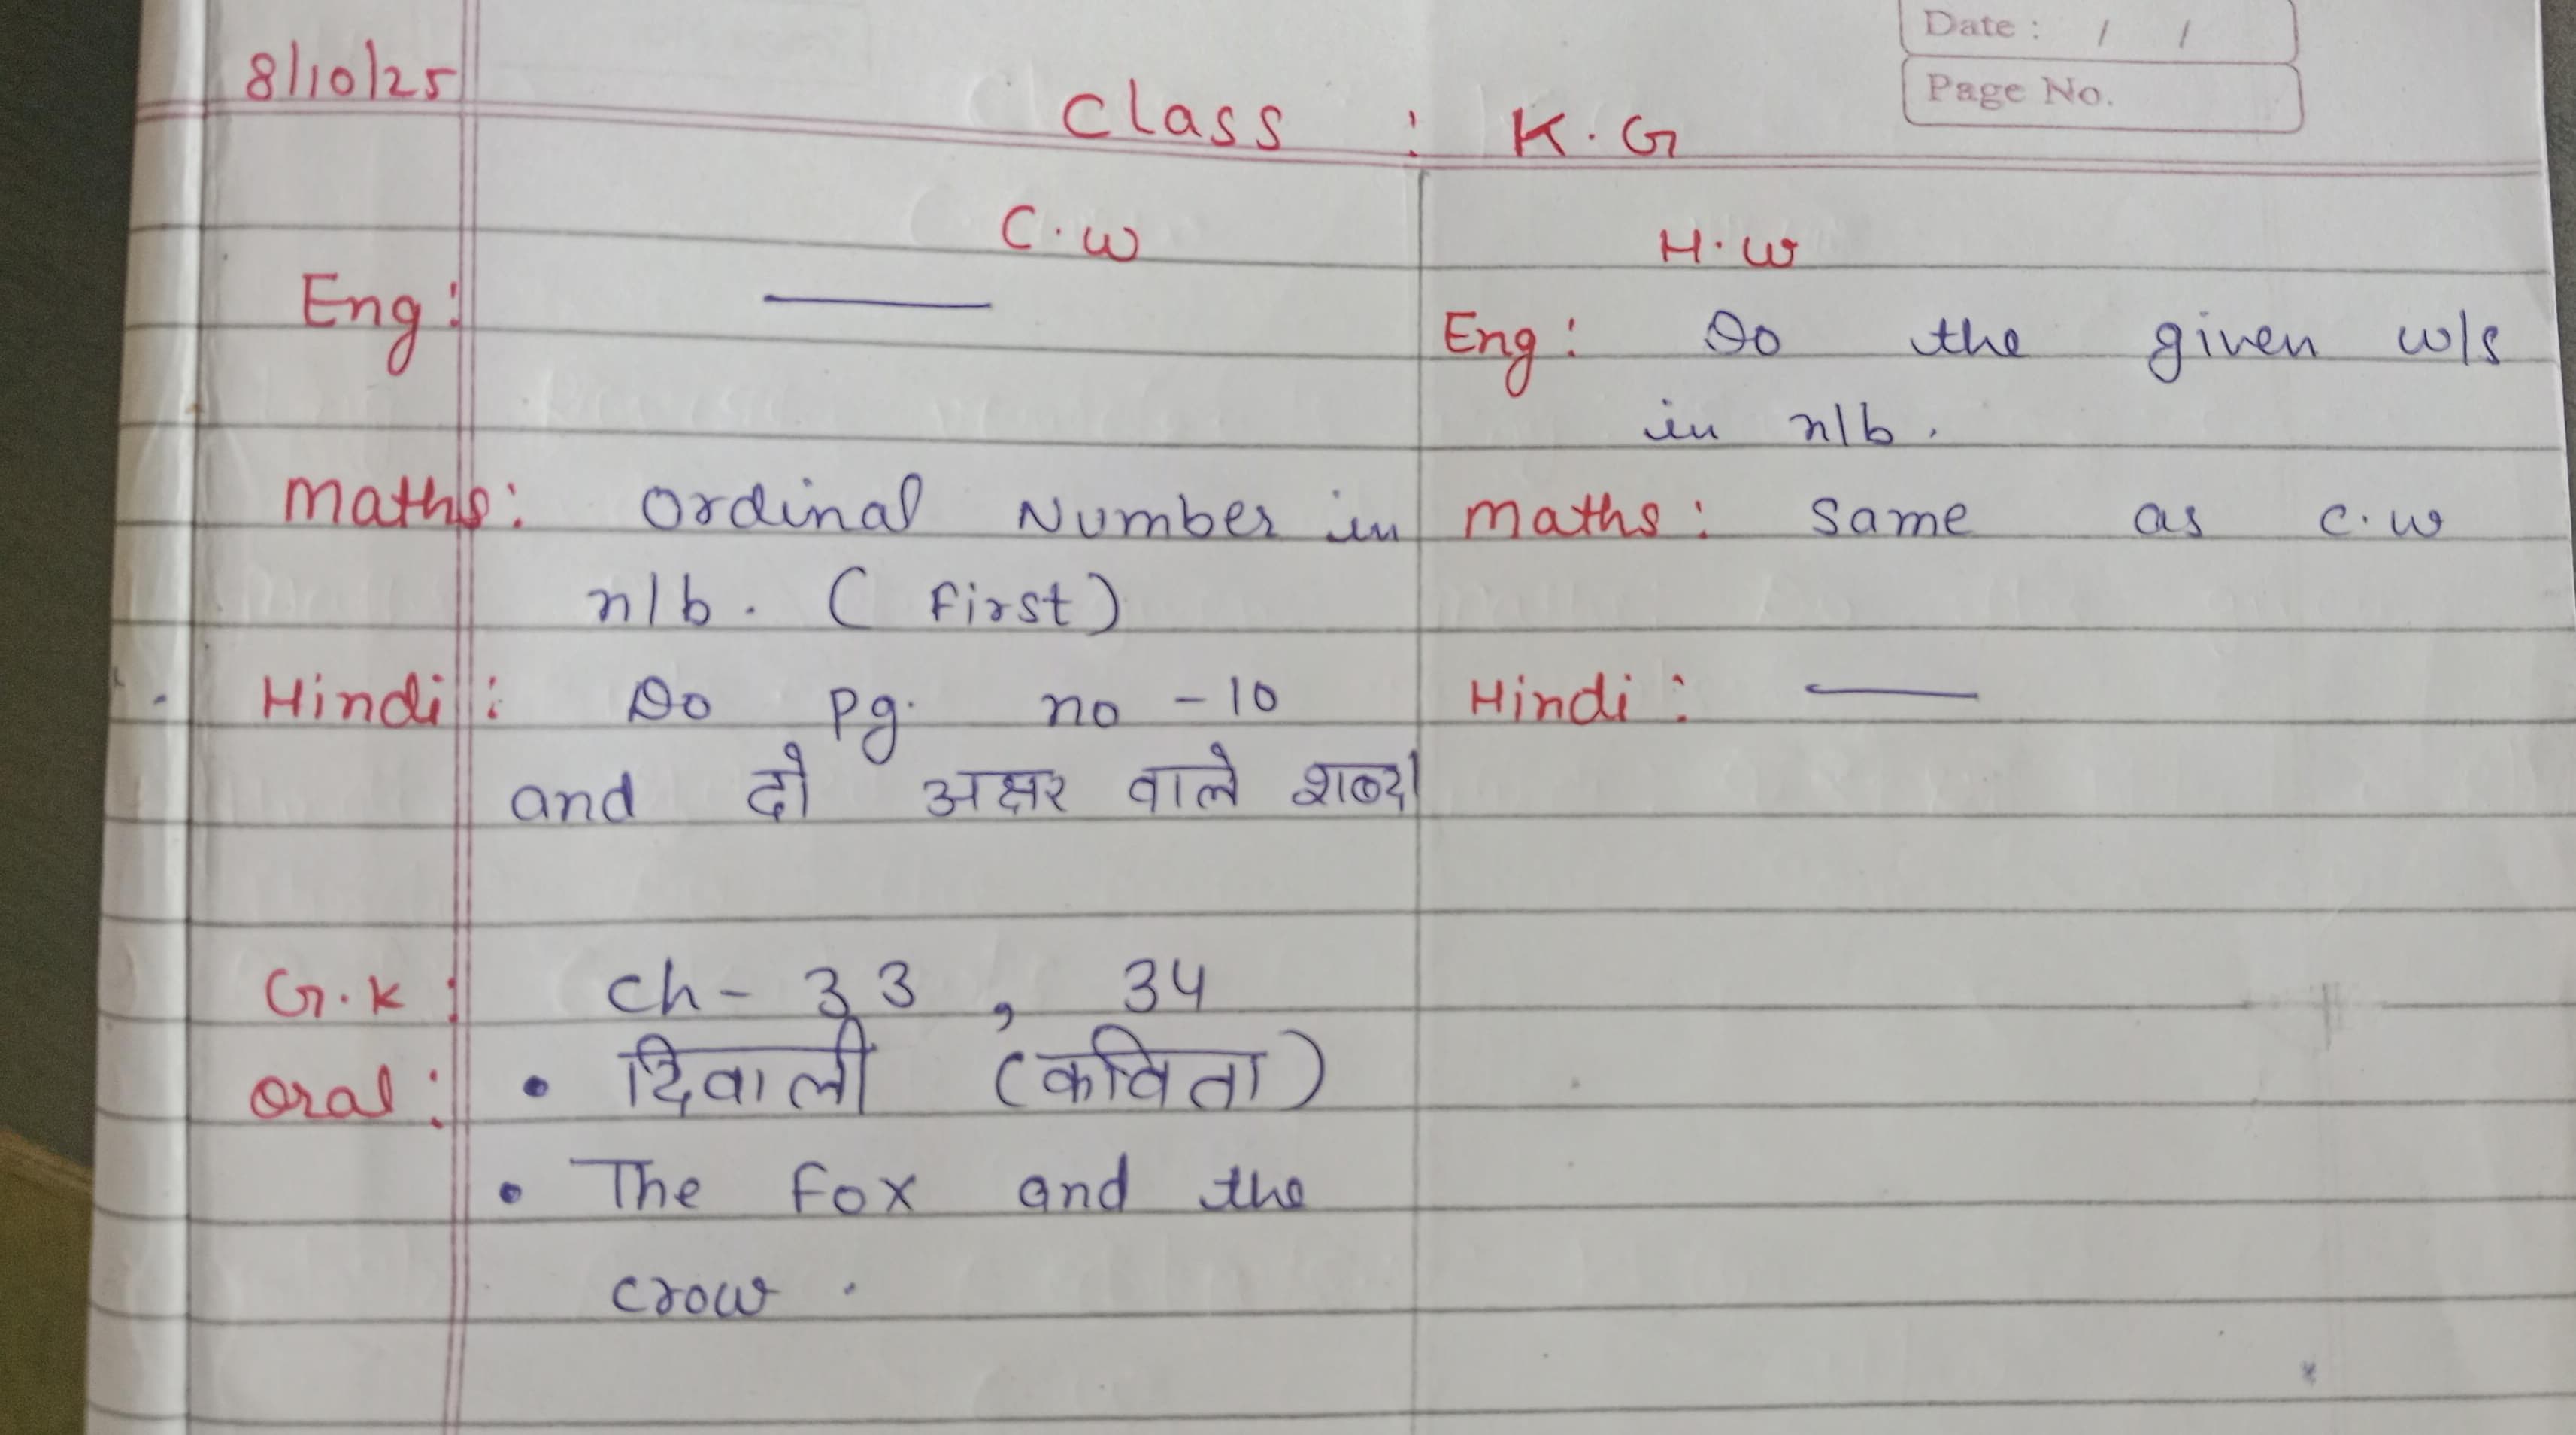 Date : / /
Page No.
8/10/25
Class : K.G
C.W
H.W
Eng :
Eng : Do the given w/s
in n/b.
Maths : Ordinal Number in
n/b. (First)
Maths : Same as C.W
Hindi : Do Pg. no - 10
and दो अक्षर वाले शब्द।
Hindi :
G.K : Ch - 33, 34
Oral : • दिवाली (कविता)
• The Fox and the
crow.